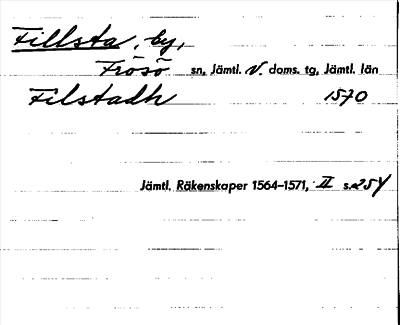 Fillsta, by,
Frösö sn, Jämtl. V. doms. tg, Jämtl. län
Filstadh 1570
Jämtl. Räkenskaper 1564–1571, II s. 254